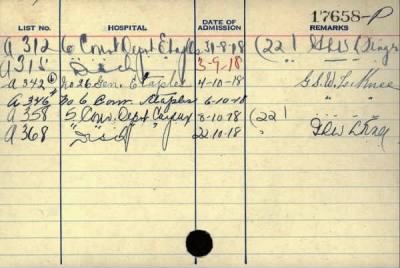 17658-P
LIST No. HOSPITAL DATE OF ADMISSION REMARKS
A 312 6 Conv Dept Etaples 31-8-18 (22) GSW L
A 315 Disch 3-9-18
A 342 No 26 Gen. Etaples 4-10-18 G.S.W. L. Knee
A 346 No 6 Conv. Etaples 6-10-18 " " "
A 358 5 Conv. Dept 8-10-18 (22) GSW L
A 368 "Disch" 22.10.18